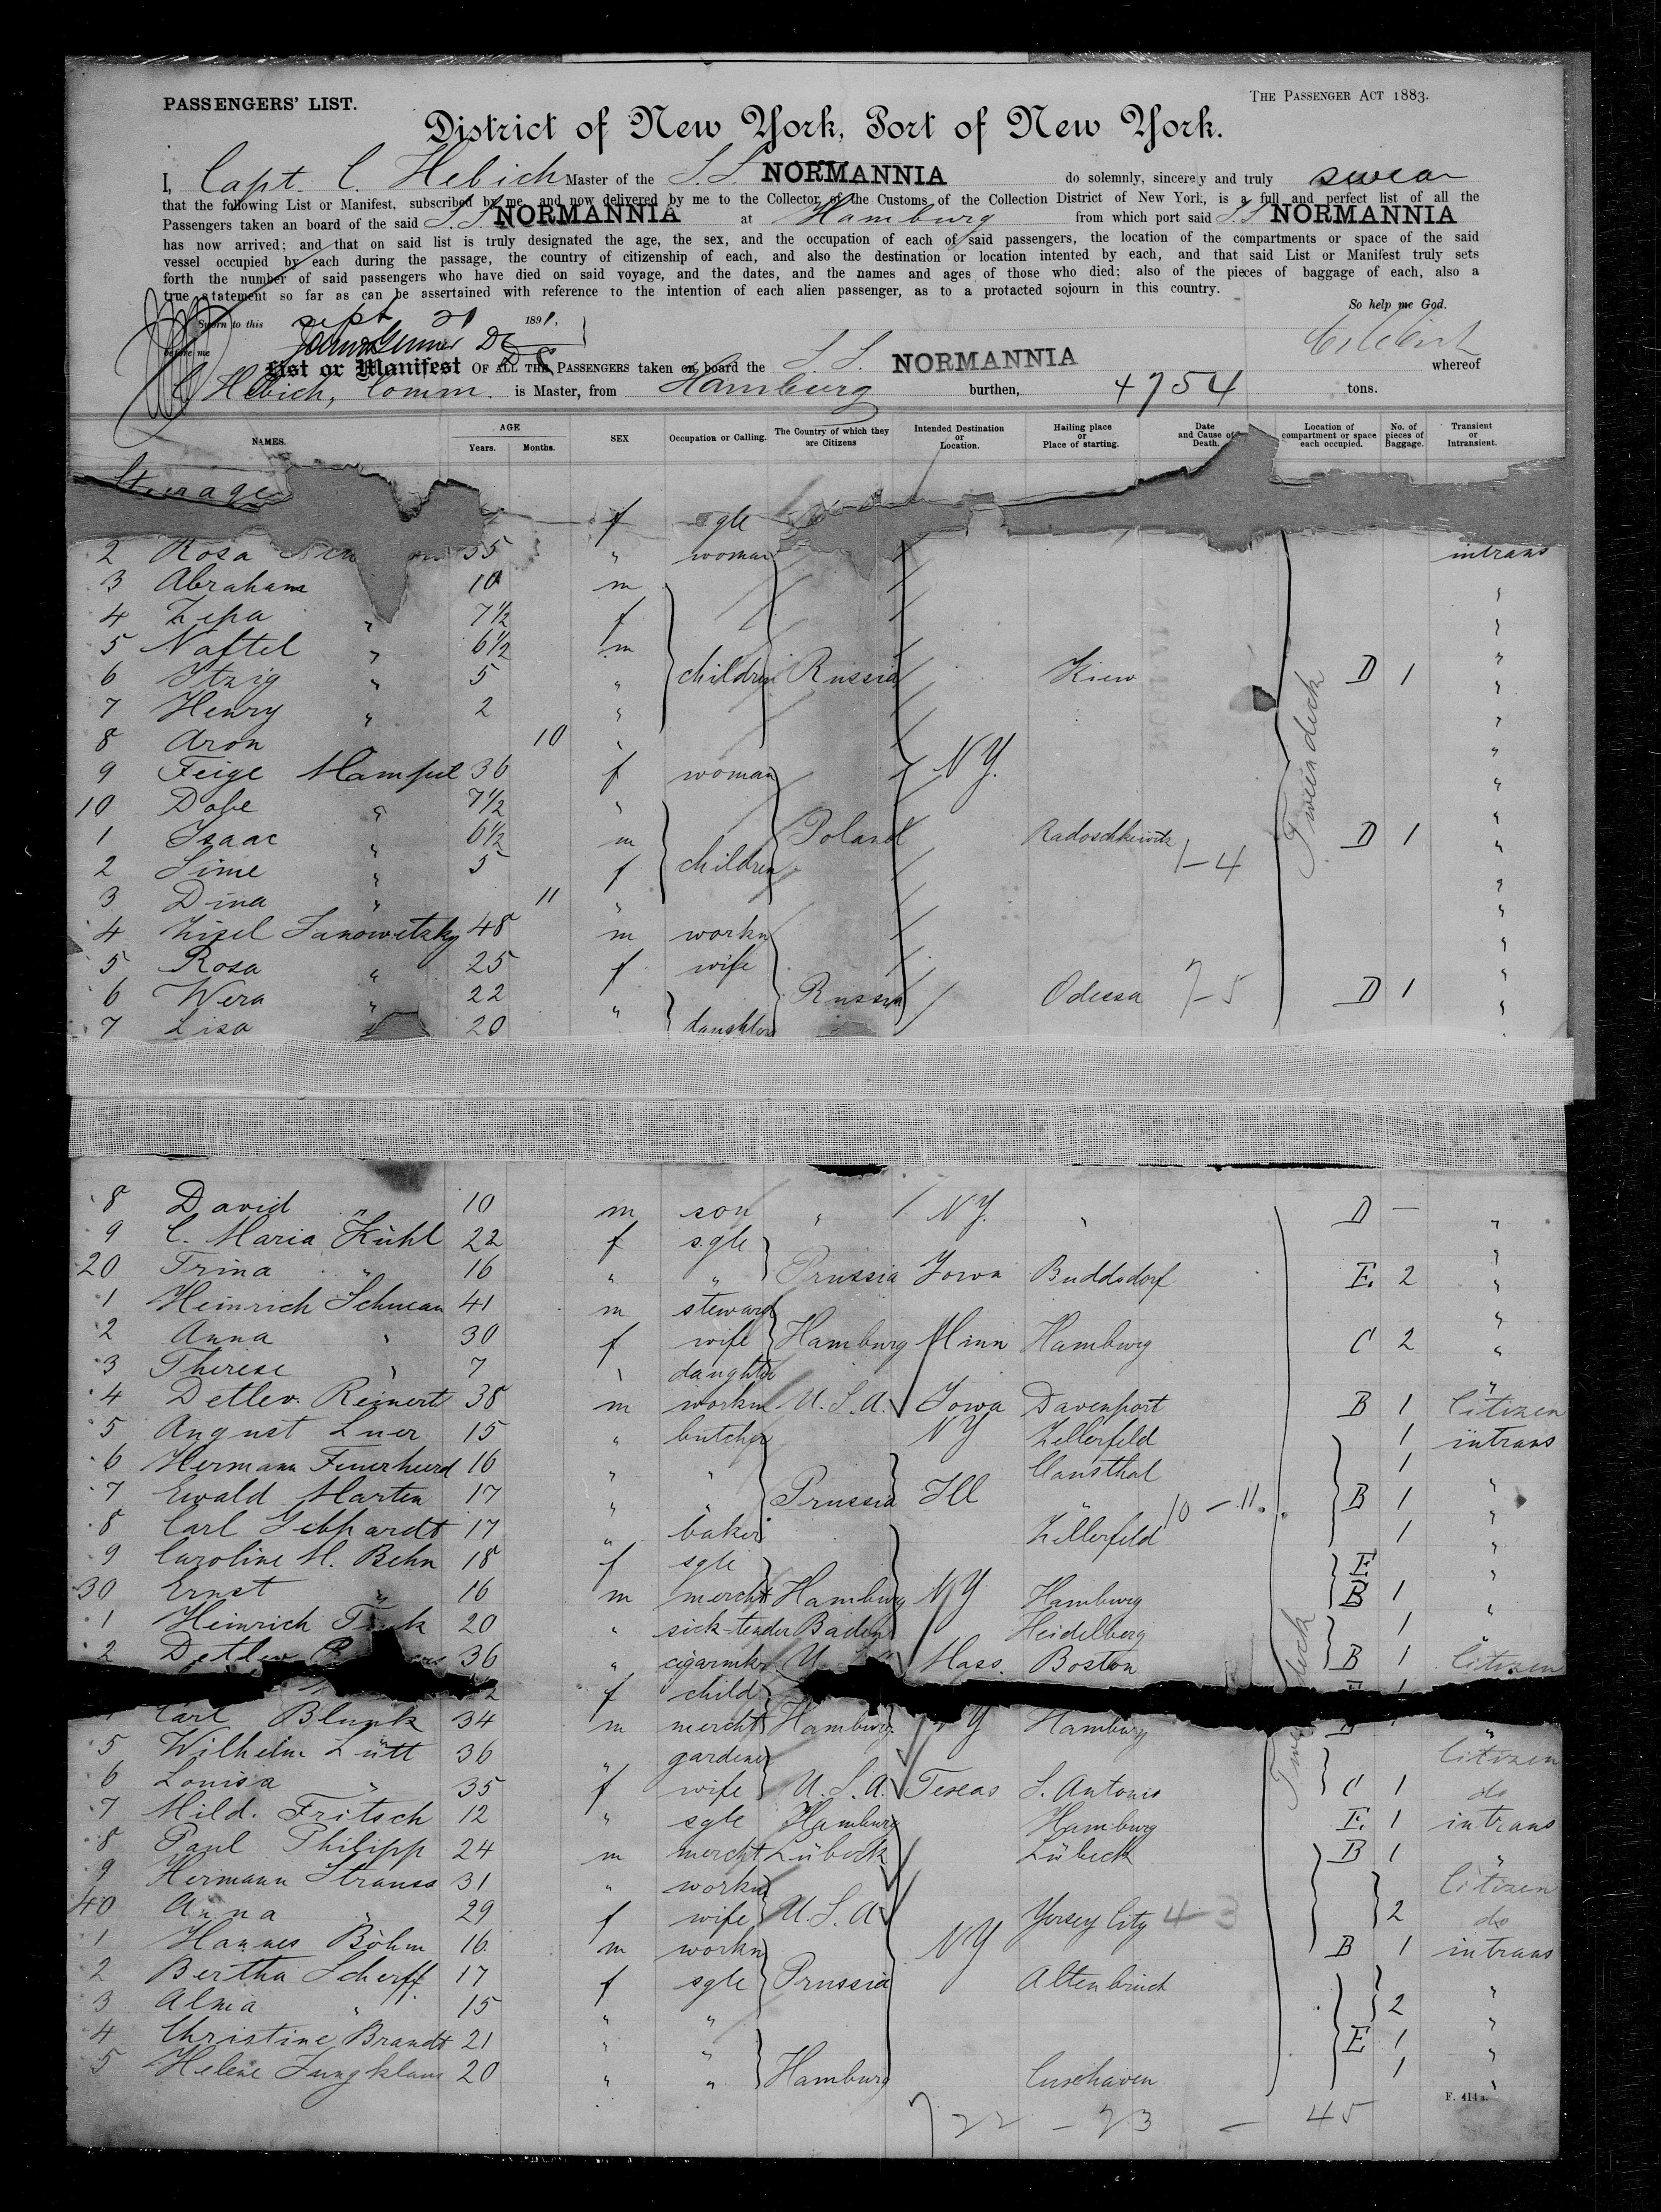 PASSENGERS' LIST.
THE PASSENGER ACT 1883.
District of New York, Port of New York.
I, Capt. C. Hebich Master of the S.S. NORMANNIA do solemnly, sincerely and truly swear
that the following List or Manifest, subscribed by me, and now delivered by me to the Collector of the Customs of the Collection District of New York, is a full and perfect list of all the
Passengers taken an board of the said S.S. NORMANNIA at Hamburg from which port said S.S. NORMANNIA
has now arrived; and that on said list is truly designated the age, the sex, and the occupation of each of said passengers, the location of the compartments or space of the said
vessel occupied by each during the passage, the country of citizenship of each, and also the destination or location intented by each, and that said List or Manifest truly sets
forth the number of said passengers who have died on said voyage, and the dates, and the names and ages of those who died; also of the pieces of baggage of each, also a
true statement so far as can be assertained with reference to the intention of each alien passenger, as to a protacted sojourn in this country.
So help me God.
Sworn to this Sept 21 1891,
before me
List or Manifest OF ALL THE PASSENGERS taken on board the S.S. NORMANNIA whereof
C. Hebich, Comm. is Master, from Hamburg burthen, 4754 tons.
NAMES. AGE Years. Months. SEX Occupation or Calling. The Country of which they are Citizens Intended Destination or Location. Hailing place or Place of starting. Date and Cause of Death. Location of compartment or space each occupied. No. of pieces of Baggage. Transient or Intransient.
Steerage
f sgle
2 Rosa 35 " woman intrans
3 Abraham 10 m "
4 Zepa " 7½ f "
5 Naftel " 6½ m "
6 Itzig " 5 " children Russia Kiew D 1 "
7 Henry " 2 " "
8 Aron 10 " "
9 Feige Mampel 36 f woman NY. "
10 Dobe " 7½ " "
1 Isaac " 6½ m Poland Radoschkewitz D 1 "
2 Sime " 5 f children 1-4 "
3 Dina " 11 " "
4 Zisel Sanowetzky 48 m workn "
5 Rosa " 25 f wife "
6 Wera " 22 " Russia Odessa 7-5 D 1 "
7 Lisa 20 daughters Tween deck
8 David " 10 m son " NY. " D - "
9 C. Maria Kühl 22 f sgle "
20 Trina " 16 " " Prussia Iowa Buddsdorf E. 2 "
1 Heinrich Schwan 41 m steward
2 Anna " 30 f wife Hamburg Minn Hamburg C 2 "
3 Therese " 7 " daughter "
4 Detlev. Reinert 38 m workm U.S.A. Iowa Davenport B 1 Citizen
5 August Luer 15 " butcher NY Zellerfeld 1 intrans
6 Hermann Feuerheerd 16 " " Clausthal 1
7 Ewald Marten 17 " " Prussia Ill " 10-11. B 1 "
8 Carl Gebhardt 17 " baker Zellerfeld 1 "
9 Caroline M. Behn 18 f sgle E "
30 Ernst " 16 m mercht Hamburg NY Hamburg B 1 "
1 Heinrich 20 " sick-tender Baden Heidelberg 1 "
2 Detlev 36 " cigarmkr U Mass. Boston B 1 Citizen
f child
Carl Blunk 34 m mercht Hamburg NY Hamburg B "
5 Wilhelm Lütt 36 " gardener Citizen
6 Louisa " 35 f wife U.S.A. Texas S. Antonio C 1 do
7 Mild. Fritsch 12 " sgle Hamburg Hamburg E. 1 intrans
8 Paul Philipp 24 m mercht Lübeck Lübeck B 1 "
9 Hermann Strauss 31 " workm Citizen
40 Anna " 29 f wife U.S.A. Yersey City 4-3 2 do
1 Hannes Böhm 16 m workm NY B 1 intrans
2 Bertha Scherff 17 f sgle Prussia Altenbruch "
3 Alma " 15 " " 2 "
4 Christine Brandt 21 " " E 1 "
5 Helene Jungklaus 20 " " Hamburg Cuxhaven 1 "
F. 414a.
22 - 23 - 45